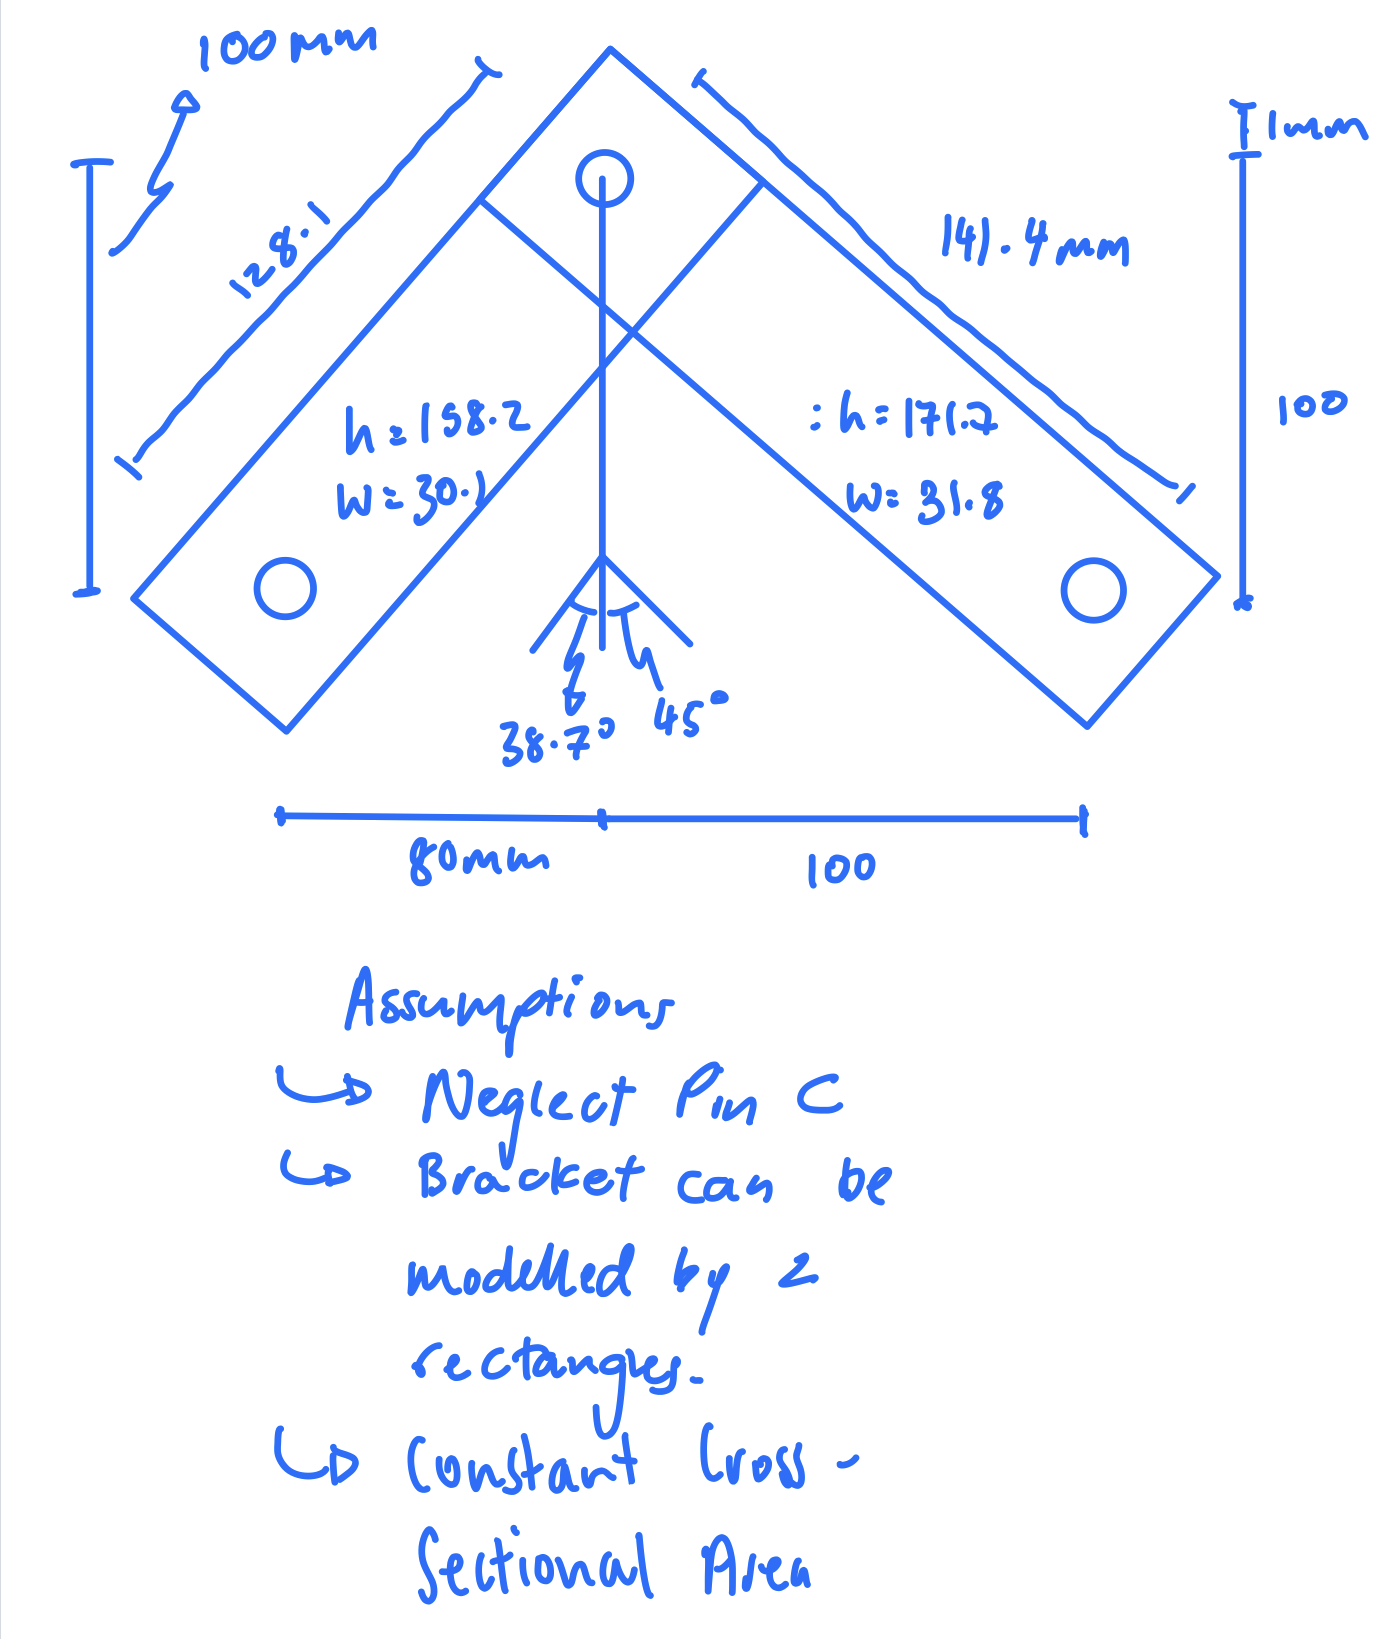 100mm
128.1
1mm
141.4mm
100
h=158.2
w=30.1
: h=171.7
w=31.8
38.7°
45°
80mm
100
Assumptions
Neglect Pin C
Bracket can be
modelled by 2
rectanges.
Constant Cross-
Sectional Area